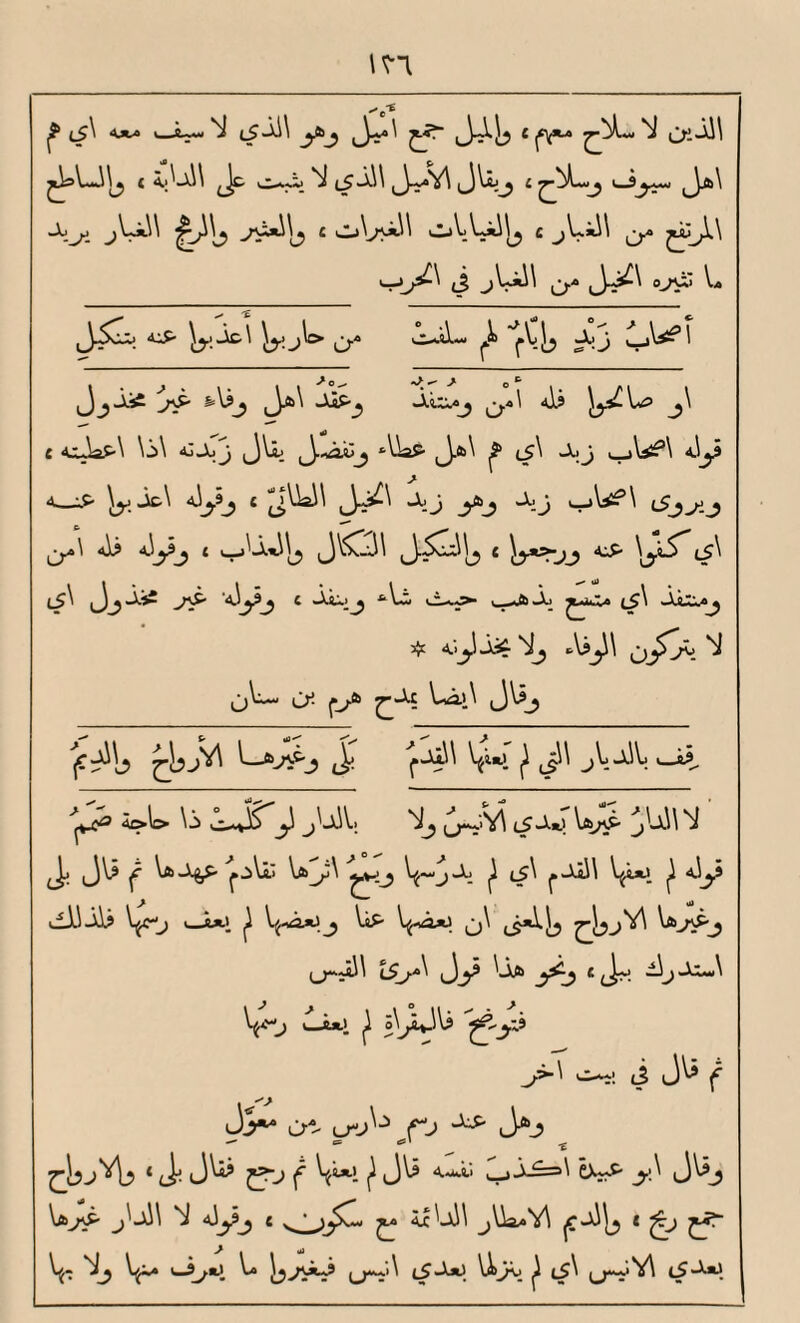 ١٣٦
الذين لا سلاح معهم ، والميل جمع أَمْيَل وهو الذي لا سيف معه أي هم
أهل سيوف وسلاح ، ويقال الأميل الذي لا يثبت على الدابة ، والساطع
المرتفع من الغبار ، والغيابات الغبرات ، والعثير والرهج الغبار يريد
ما تثيره الخيل من الغبار في الحرب
أَصحابُ زبدٍ وأيامٌ لهم سلفت من حاربوا أعذبوا عنه بتنكيل
أو صالحوا فله أمنٌ ومنتفذٌ وعقدُ أهل وفاءٍ غيرُ مخذول
قوله أصحاب زبد أي هم أهل عطاء وتفضل يقال زبدته اذا أعطيته ،
ويروى أصحاب زيد وهو زيد الخيل الطائي ، وقوله أعذبوا عنه
أي كفوا عنه ورجعوا ، والتنكيل النكال والعذاب ، وقوله فله أمن
ومنتفذ أي متسع يذهب حيث شاء وينفذ ، وقوله غير مخذول أي
لا يتركون الوفاء ولا يخذلونه *
وقال أيضا يمدح هرم بن سنان
قف بالديار التي لم يعفها القدمُ بلى وغيّرها الأرواحُ والديمُ
لا الدارُ غيّرها بعدي الأنيسُ ولا بالدار لو كلّمت ذا حاجةٍ صممُ
قوله لم يعفها القدم أي لم يدرسها ويمح أثرها تقادم عهدها ثم قال بلى
وغيرها الأرواح والمعنى ان بعضها عفا وبعضها لم يعف رسمها فلذلك
استدرك ببلى ، ونحو هذا قول امرئ القيس
فتوضحَ فالمقراةِ لم يعفُ رسمها
ثم قال في بيت آخر
وهل عند رسمٍ دارسٍ من معوّل
وقال أبو عبيدة أكذب نفسه قال لم يعفها ثم رجع فقال بلى ، والأرواح
جمع ريح ، والديم الأمطار الدائمة مع سكون ، وقوله لا الدار غيرها
بعدي الأنيس أي لم ينزلها بعدي أنيس فغيروا ما يعرف منها ولا بها